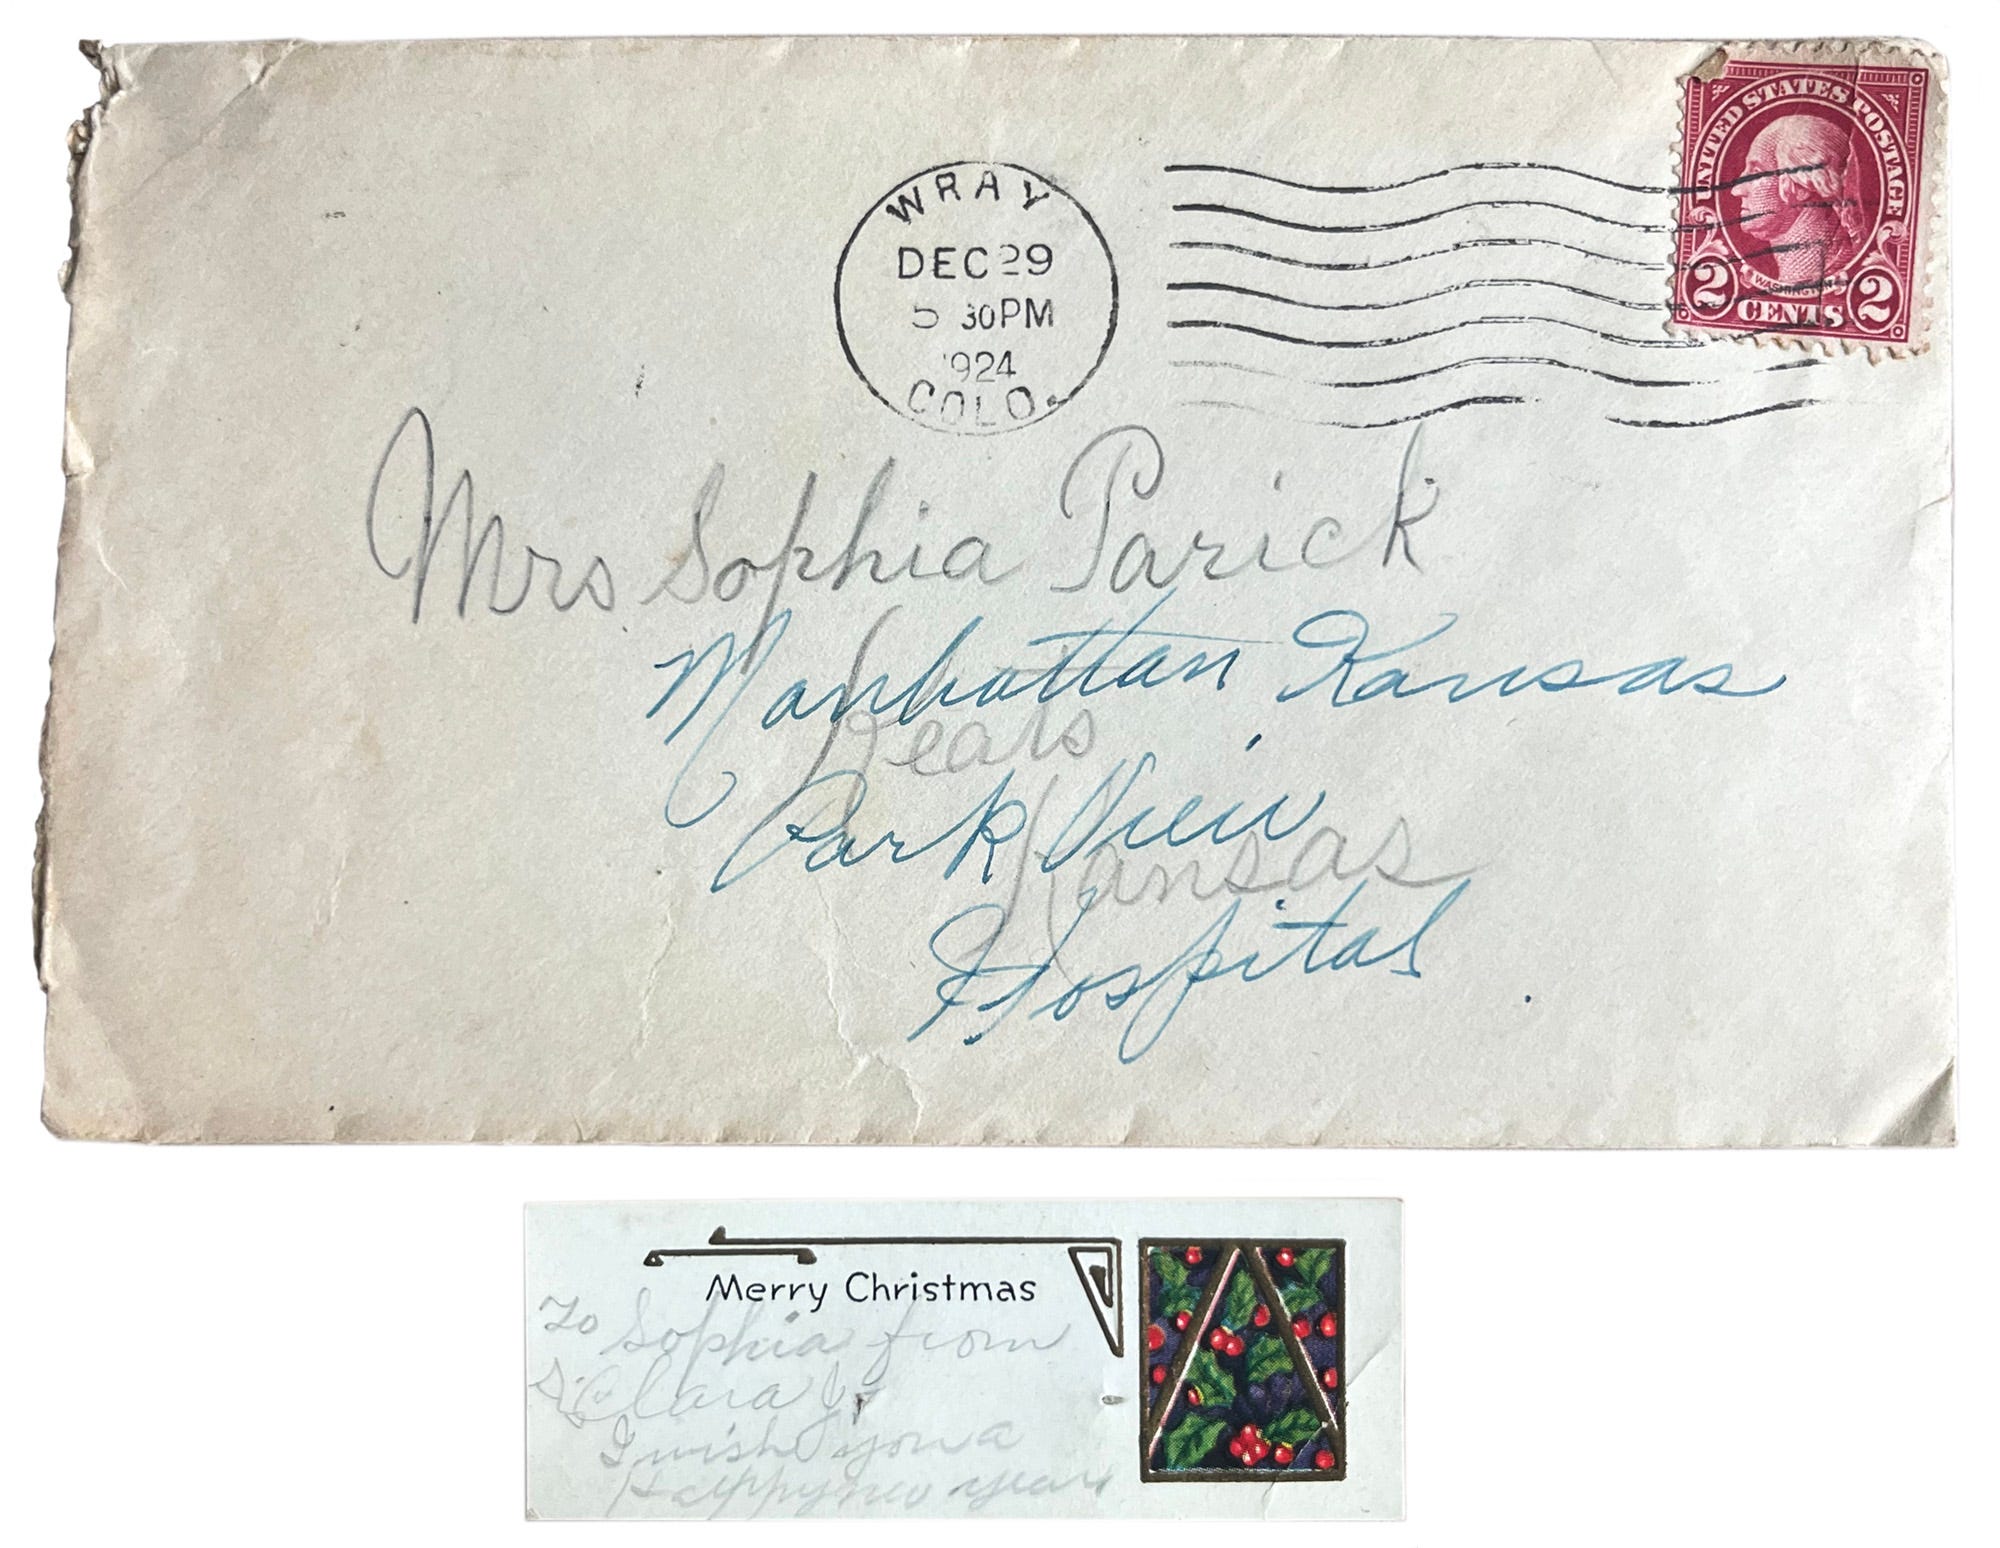 UNITED STATES POSTAGE
WASHINGTON
2 CENTS 2
WRAY
DEC 29
5 30PM
1924
COLO.
Mrs Sophia Parick
Manhattan Kansas
Park View
Kansas
Hospital
Merry Christmas
To Sophia from
Clara
I wish you a
Happy new year